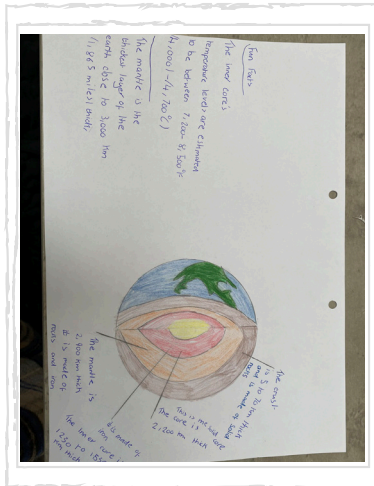 Fun Facts
The inner core's
temperature levels are estimated
to be between 7,200-8,500°F
(4,0001-/4,700°C)
The mantle is the
thickest layer of the
earth close to 3,000 km
(1,865 miles) thick.
The crust
is 5 to 70 km thick
and is made of solid
This is the
The core is
2,200 km thick
The mantle is
2,900 km thick
it is made of
and iron
is made of
iron
The inner core is
1,230 to
km thick